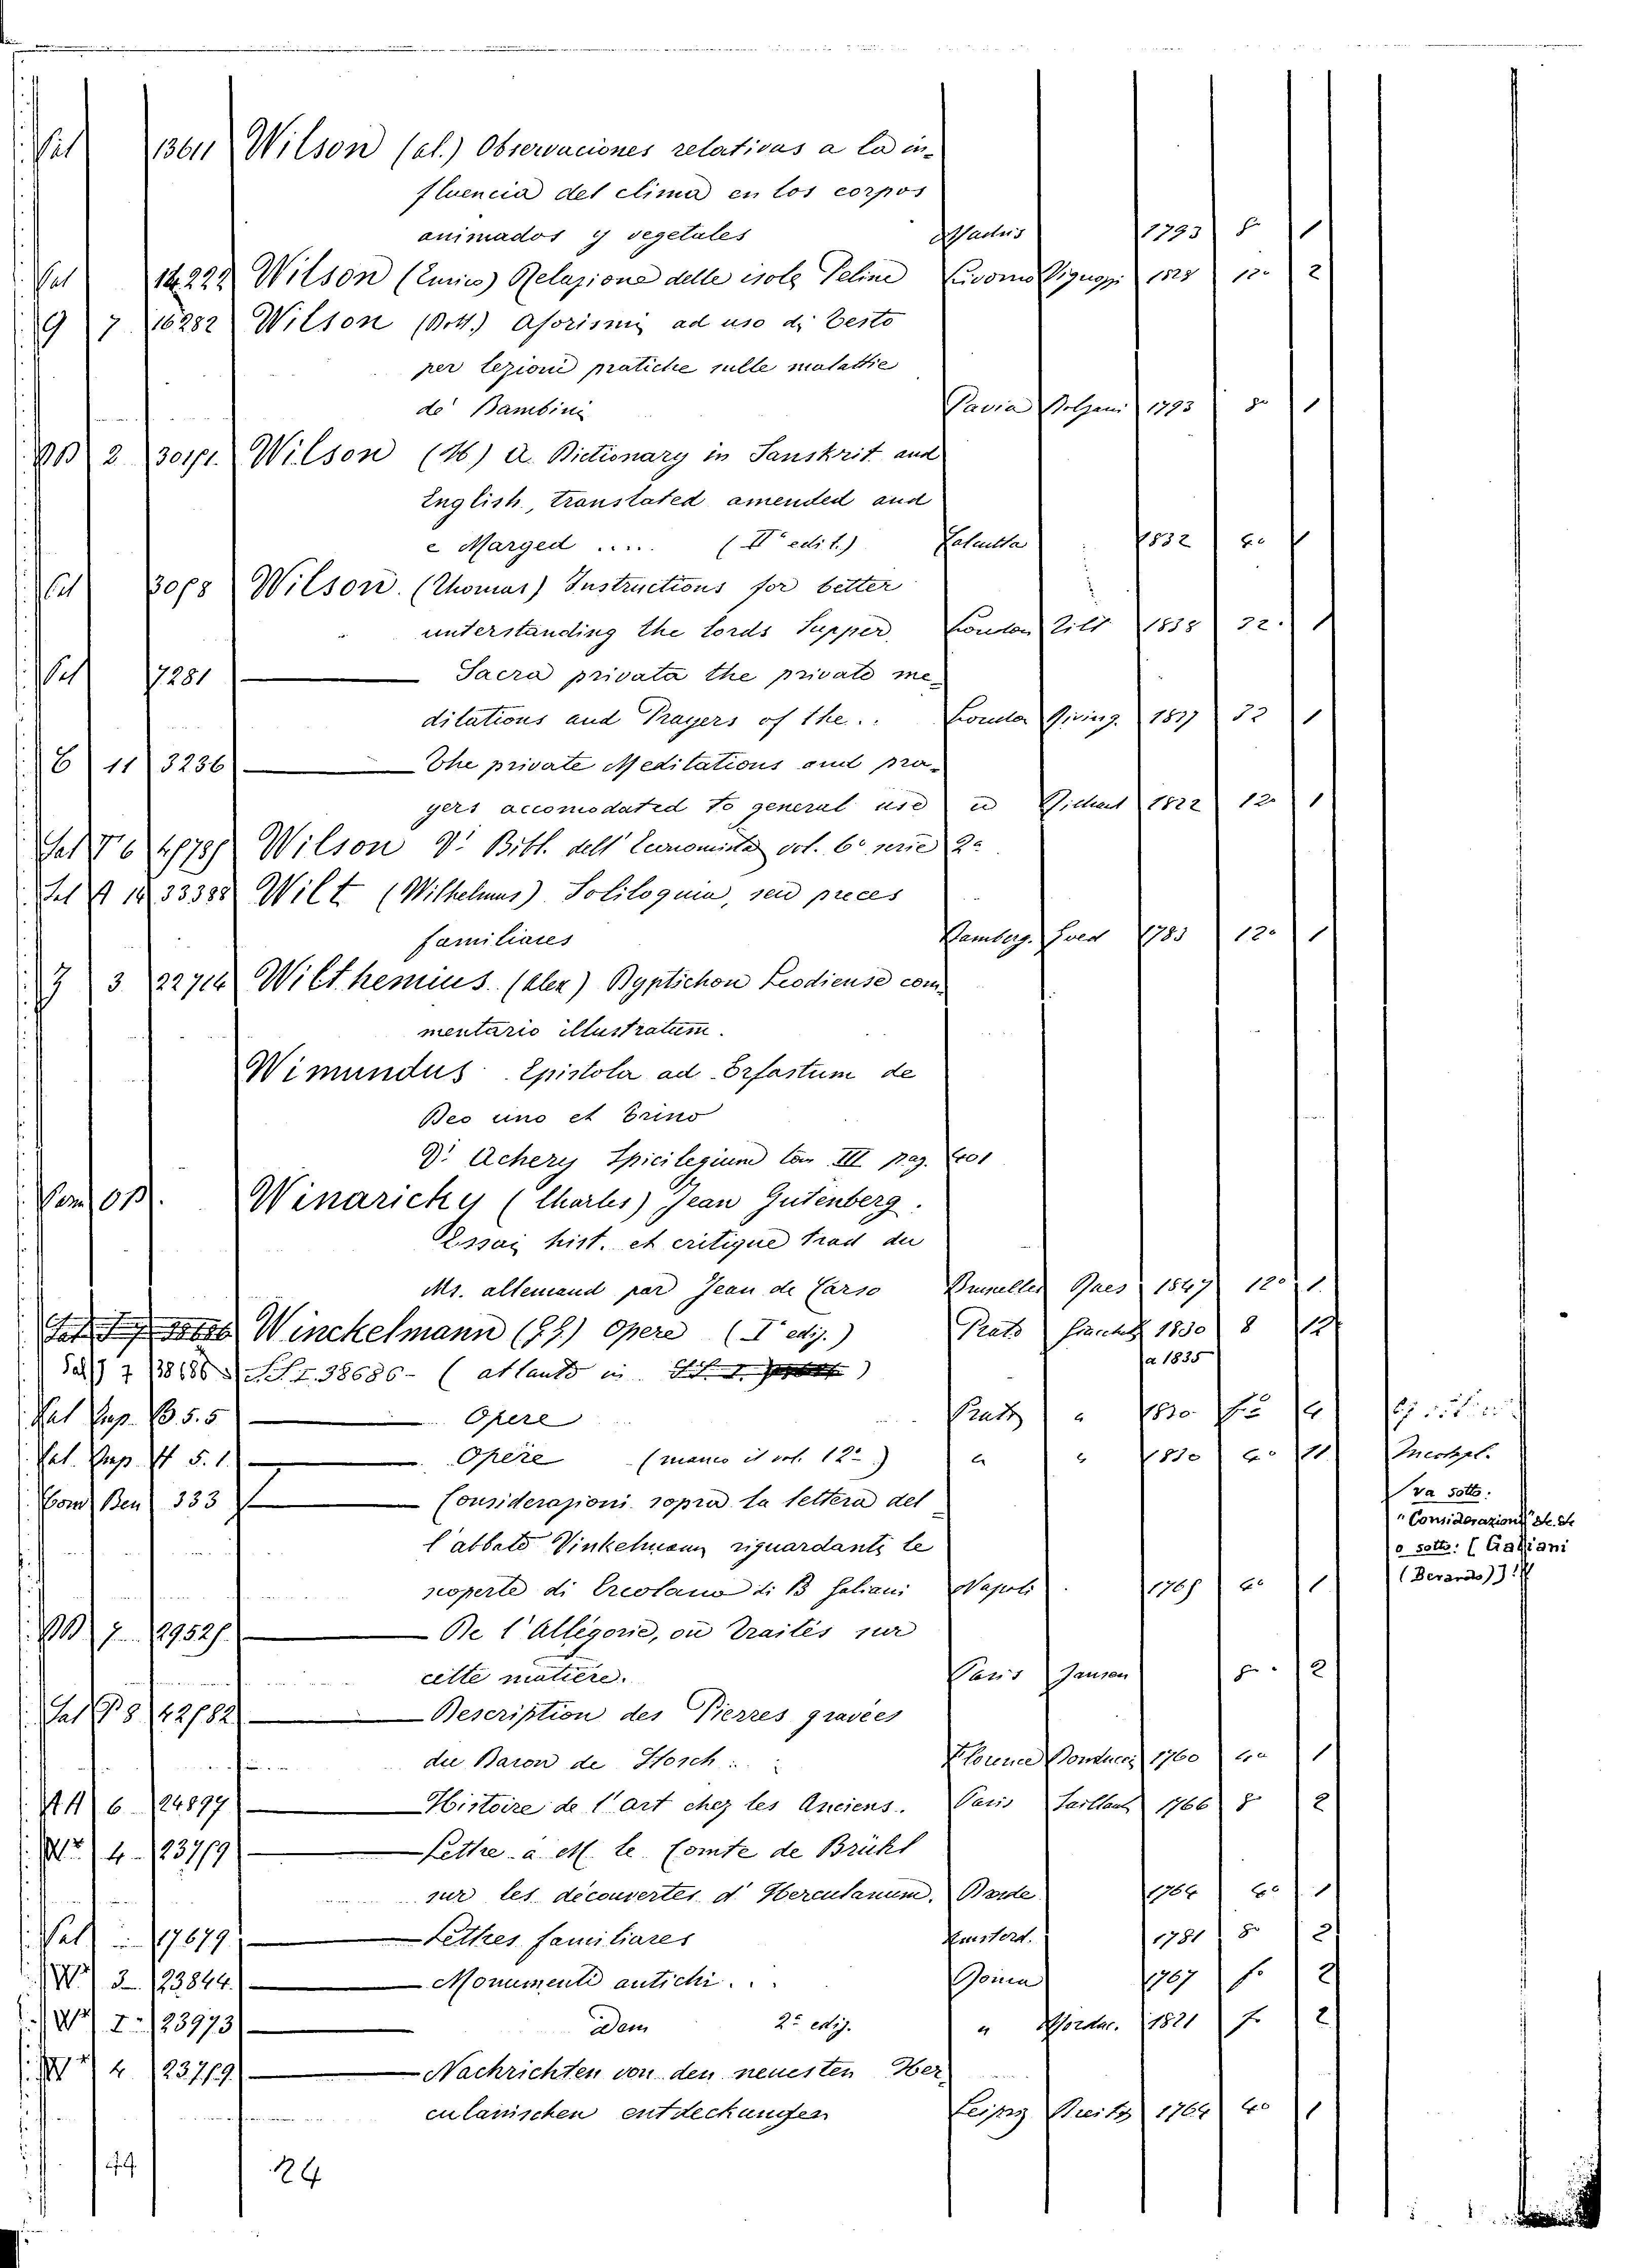 Sal 13611 Wilson (al.) Observaciones relativas a la in-
fluencia del clima en los corpos
animados y vegetales Madris 1793 8° 1
Sal 14222 Wilson (Enrico) Relazione delle isole Peline Livorno Vignozzi 1828 12° 2
9 7 16282 Wilson (Dott.) Aforismi ad uso di testo
per lezioni pratiche sulle malattie
de' Bambini Pavia Bolzani 1793 8° 1
2 Wilson (H) A. Dictionary in Sanskrit and
English, translated amended and
e Marged ..... (II° edit.) Calcutta 1832 4° 1
Sal Wilson. (Thomas) Instructions for better
unterstanding the lords Supper. London Tilt 1838 32. 1
Sal 7281 — Sacra privata the private me-
ditations and Prayers of the.. London Riving. 1837 32 1
E 11 3236 — The private Meditations and pra-
yers accomodated to general use id 1822 12° 1
Wilson V: Bibl. dell' Economista vol. 6° serie 2ª
Sal A 14 33388 Wilt (Wilhelmus) Soliloquia, seu preces
familiares Bamberg. 1783 12° 1
Z 3 22714 Wilthemius. (Alex) Dyptichon Leodiense com-
mentario illustratum.
Wimundus Epistola ad Erfastum de
Deo uno et trino
V: Achery Spicilegium tom III pag. 401
Com OB. Winaricky (Charles) Jean Gutenberg.
Essai hist. et critique trad du
Ms. allemand par Jean de Carso Bruxelles 1847 12° 1.
Winckelmann (GG.) Opere (I ediz.) Prato Giacchetti 1830 8 12
a 1835
Sal J 7 38686 38686- (atlante in)
Sal Cap. B. 5.5 — Opere Prato " 1830
Sal. Cap. A 5. 1. — Opere (manca il vol. 12°) " " 1830 4° 11 Incompl.
Com Ben 333 — Considerazioni sopra la lettera del
l'abbate Vinkelmann riguardante le
scoperte di Ercolano di B Galiani Napoli 4° 1
va sotto:
"Considerazioni" &c. &c
o sotto: (Galiani
(Berardo))!!
7 — De l'Allégorie, ou Traités sur
cette matière. Paris Jansen 8° 2
8 — Description des Pierres gravées
du Baron de Stosch : Florence Bonducci 1760 4° 1
AA 6 24897 — Histoire de l'art chez les Anciens. Paris Saillant 1766 8° 2
4 23719 — Lettre à M. le Comte de Brühl
sur les découvertes d'Herculanum. Dresde 1764 4° 1
Sal 17679 — Lettres familiares Amsterd. 1781 8° 2
3 23844. — Monumenti antichi... Roma 1767 f° 2
I 23973 — Idem 2ª ediz. " Mordac. 1821 f. 2
4 23719. — Nachrichten von den neuesten Her-
culanischen entdeckungen Leipzig Breitk 1764 4° 1
44
24